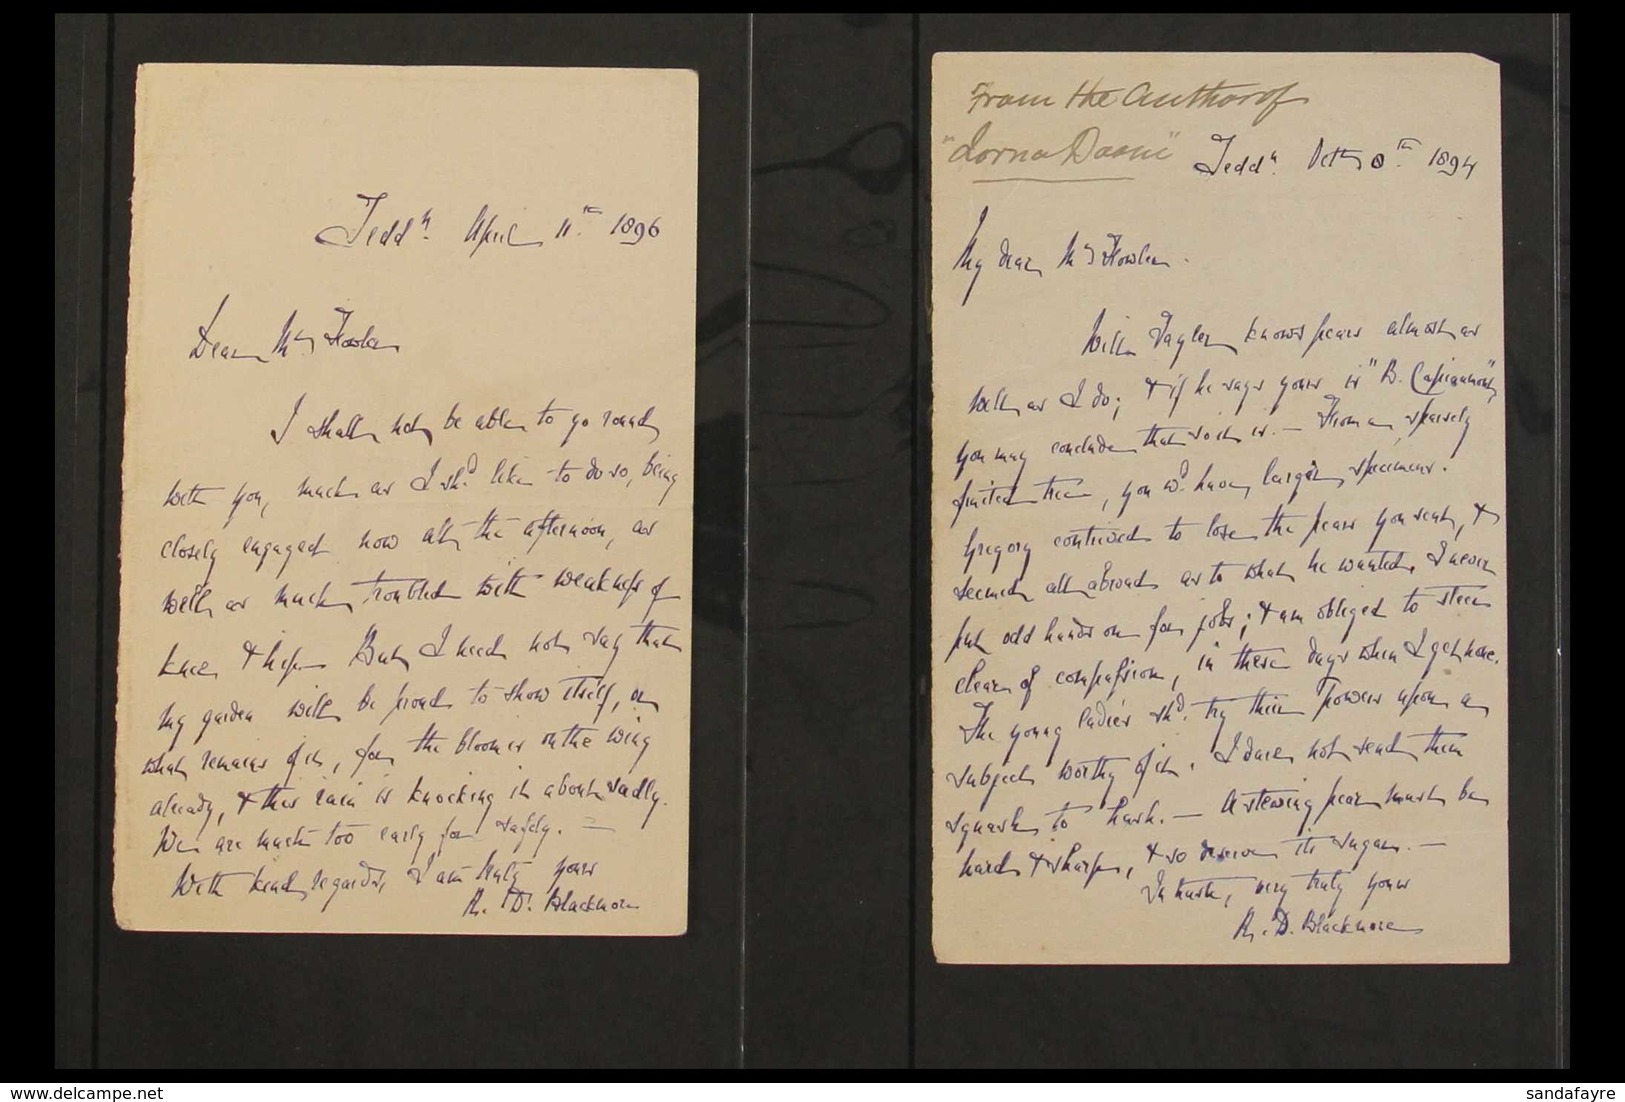 Tedd^n. April 11^th. 1896
Dear Mrs Fowler
I shall not be able to go round
with you, much as I sh^d. like to do so, being
closely engaged now all the afternoon, as
well as much troubled with weakness of
knee & hip. But I need not say that
my garden will be proud to show itself, or
what remains of it, for the bloom is on the wing
already, & this rain is knocking it about sadly.
We are much too early for safety. —
With kind regards, I am truly yours
R. D. Blackmore
From the Author of
"Lorna Doone"
Tedd^n. Oct 8^th. 1894
My dear Mrs Fowler.
Will Taylor knows pears almost as
well as I do; & if he says yours is "B. Capiaumont",
you may conclude that so it is. — From a sparsely
fruited tree, you w^d. have larger specimens.
Gregory contrived to lose the pears you sent, &
seemed all abroad as to what he wanted. I never
put odd hands on for jobs; & am obliged to steer
clear of compassion, in these days when I get none.
The young ladies sh^d. try their powers upon a
subject worthy of it. I dare not send them
squash to hash. — A stewing pear must be
hard & sharp, & so deserve its sugar. —
In haste, very truly yours
R. D. Blackmore
delcampe.net
sandafayre